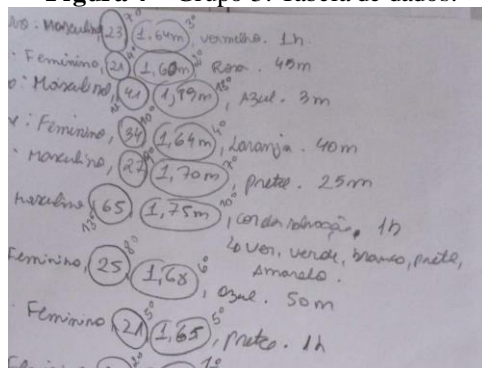 Figura 4 – Grupo 3: Tabela de dados.
: Masculino, 23, 1.64m, 3º vermelho. 1h
: Feminino, 21, 1,60m, 2º Rosa. 45m
: Masculino, 41, 1,79m, Azul. 3m
: Feminino, 34, 10º 1,64m, 4º Laranja. 40m
: Masculino, 27, 9º 1,70m, 7º preto. 25m
Masculino, 65, 13º 1,75m, 10º cor da salvação, 1h
↳ ver, verde, branco, preto,
Amarelo.
Feminino, 25, 8º 1,68, 6º azul. 50m
: Feminino, 21, 5º 1,65, 5º preto. 1h